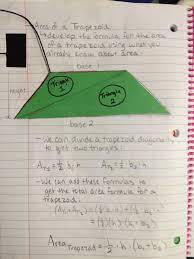 Area of a Trapezoid
→ develop the formula for the area
of a trapezoid using what you
already know about area.
base 1
Triangle
Triangle
2
height
base 2
- we can divide a trapezoid diagonally
to get two triangles:
= 1/2 b₁ · h = 1/2 b₂ · h
- We can add these formulas to
get the total area formula for a
trapezoid:
Area Trapezoid = 1/2 · h · (b₁ + b₂)